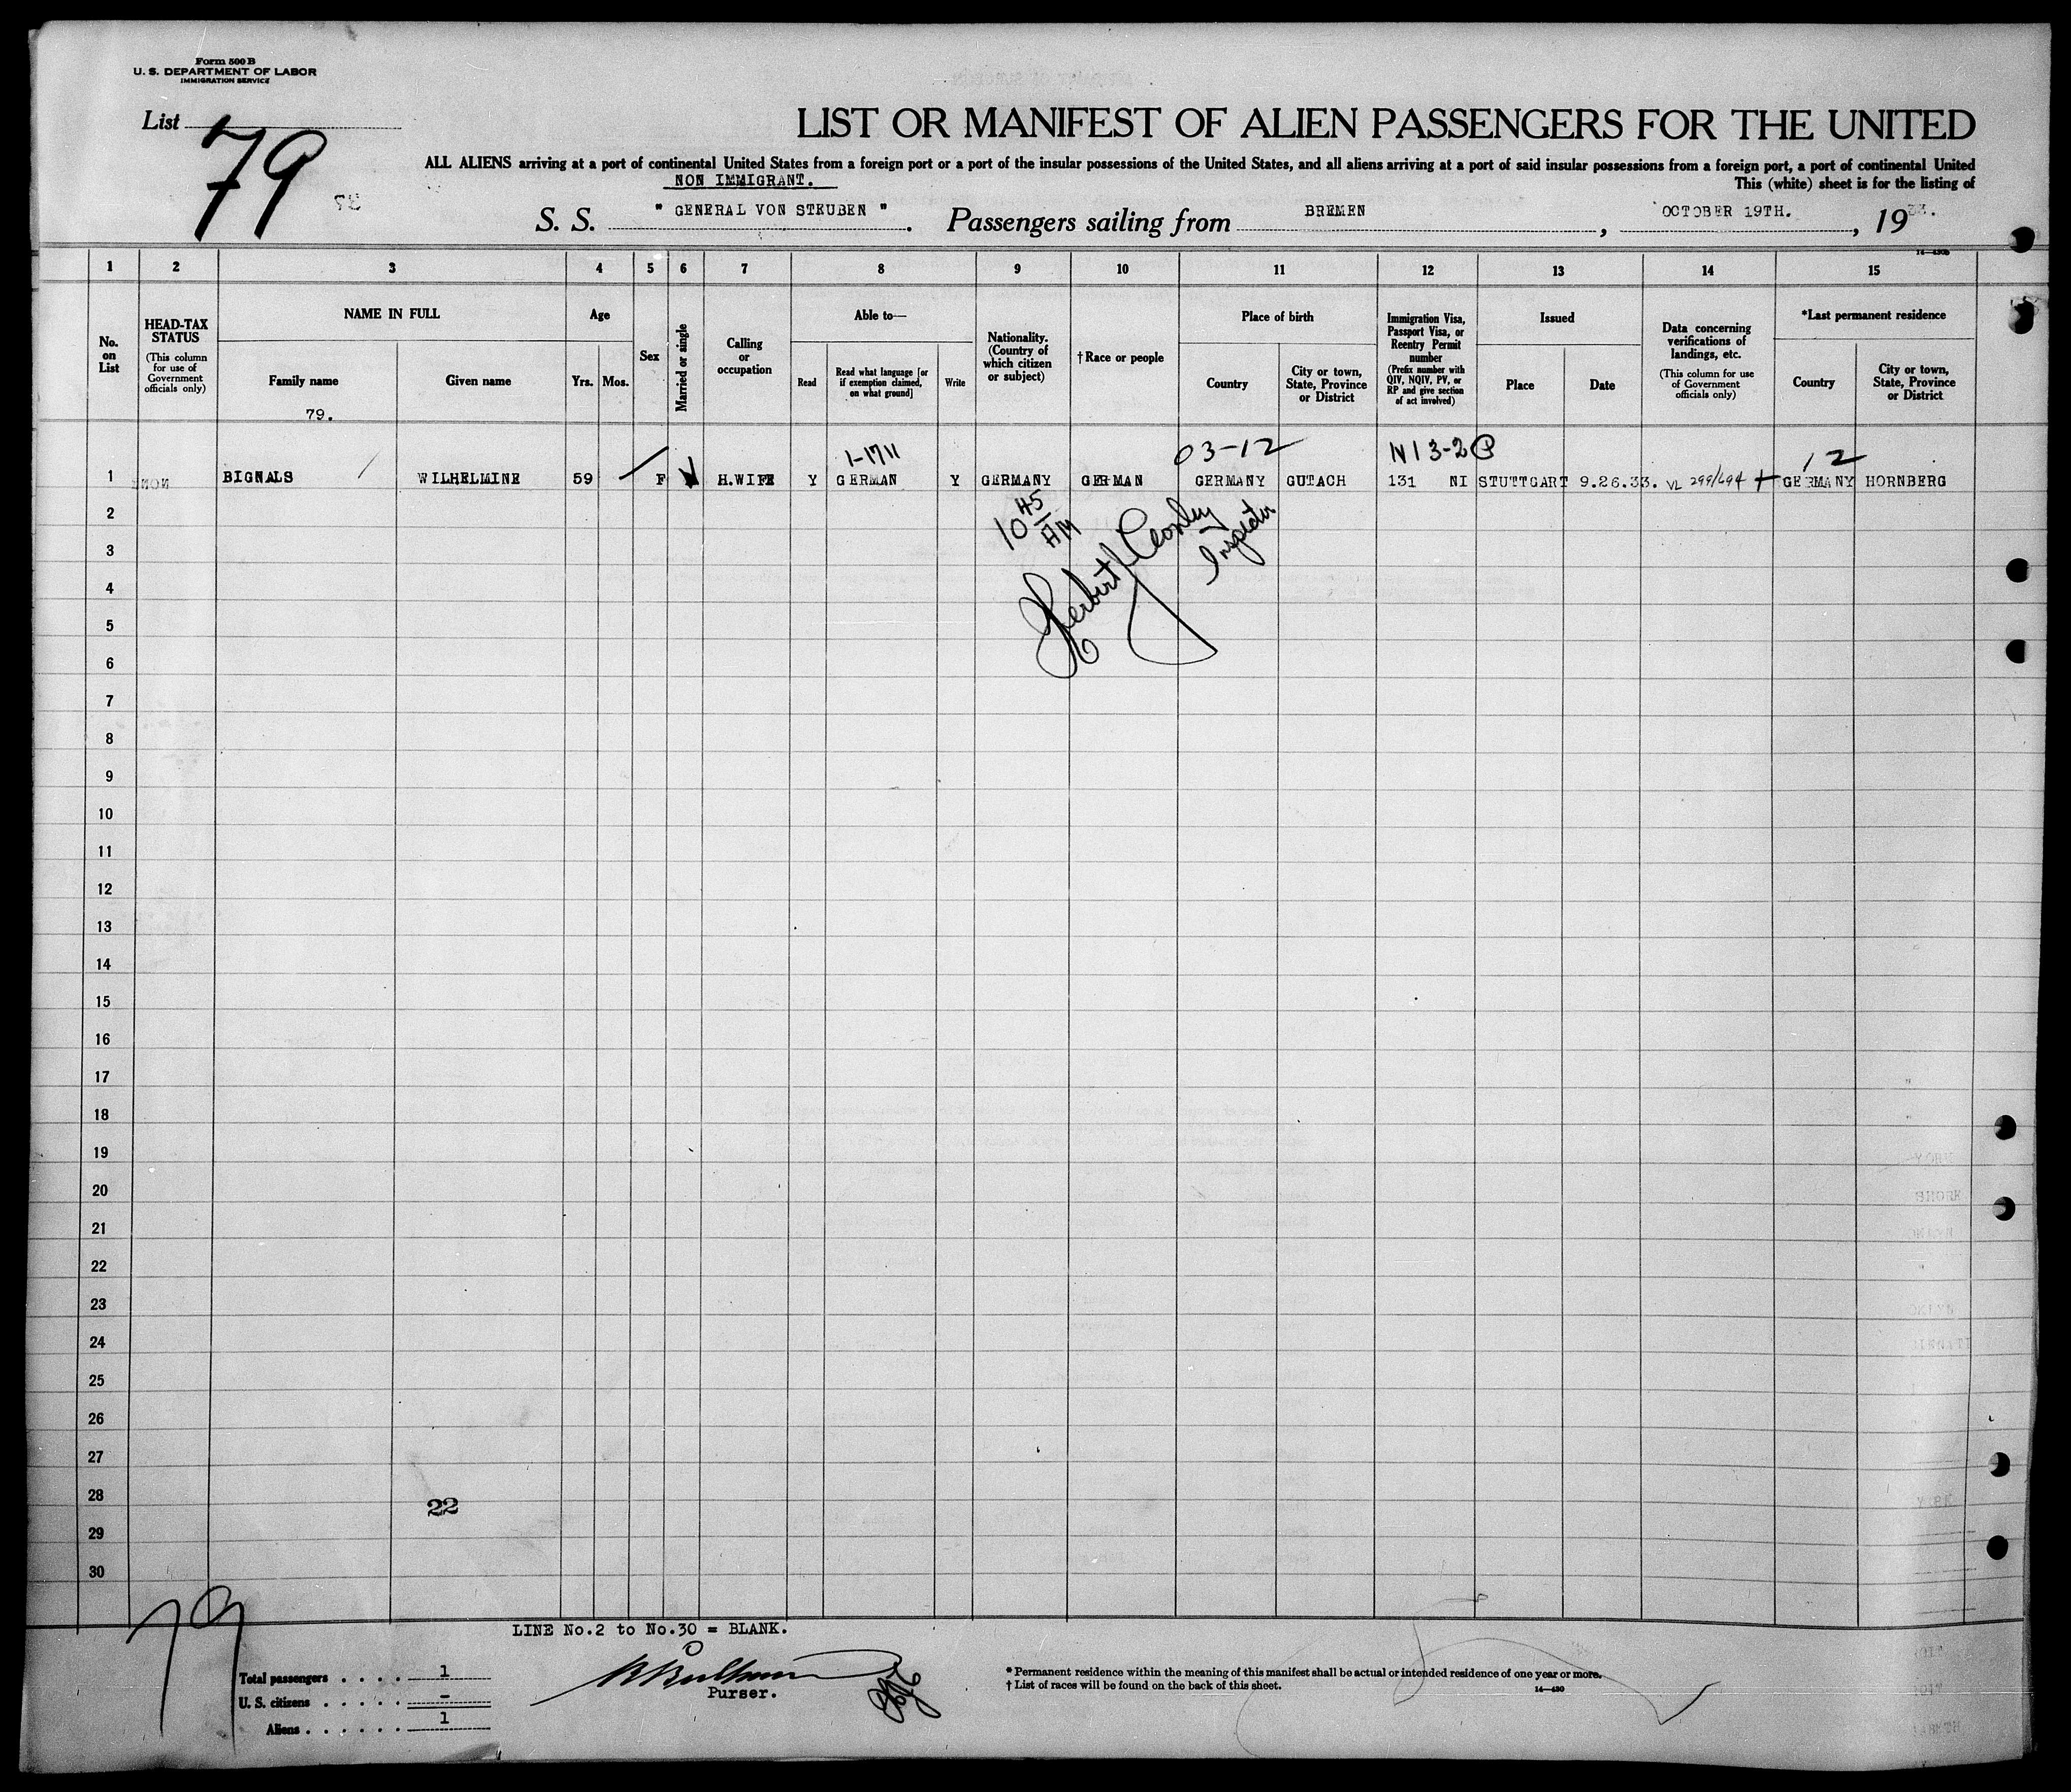 Form 500 B
U. S. DEPARTMENT OF LABOR
IMMIGRATION SERVICE
List 79
LIST OR MANIFEST OF ALIEN PASSENGERS FOR THE UNITED
ALL ALIENS arriving at a port of continental United States from a foreign port or a port of the insular possessions of the United States, and all aliens arriving at a port of said insular possessions from a foreign port, a port of continental United
NON IMMIGRANT.
This (white) sheet is for the listing of
S. S. " GENERAL VON STEUBEN " . Passengers sailing from BREMEN , OCTOBER 19TH. , 1933.
1 2 3 4 5 6 7 8 9 10 11 12 13 14 15
No. on List
HEAD-TAX STATUS
(This column for use of Government officials only)
NAME IN FULL
Family name
79.
Given name
Age
Yrs. Mos.
Sex
Married or single
Calling or occupation
Able to—
Read
Read what language [or if exemption claimed, on what ground]
Write
Nationality. (Country of which citizen or subject)
†Race or people
Place of birth
Country
City or town, State, Province or District
Immigration Visa, Passport Visa, or Reentry Permit number
(Prefix number with QIV, NQIV, PV, or RP and give section of act involved)
Issued
Place
Date
Data concerning verifications of landings, etc.
(This column for use of Government officials only)
*Last permanent residence
Country
City or town, State, Province or District
1-1711 03-12 12
1 BIGNALS WILHELMINE 59 F H.WIFE Y GERMAN Y GERMANY GERMAN GERMANY GUTACH 131 NI STUTTGART 9.26.33. VL 299/694 GERMANY HORNBERG
10 45/AM
Herbert Conley
Inspector
2
3
4
5
6
7
8
9
10
11
12
13
14
15
16
17
18
19
20
21
22
23
24
25
26
27
28 22
29
30
79
LINE No.2 to No.30 = BLANK.
Purser.
Total passengers . . . . 1
U. S. citizens . . . . . –
Aliens . . . . . . 1
* Permanent residence within the meaning of this manifest shall be actual or intended residence of one year or more.
† List of races will be found on the back of this sheet.
14—430